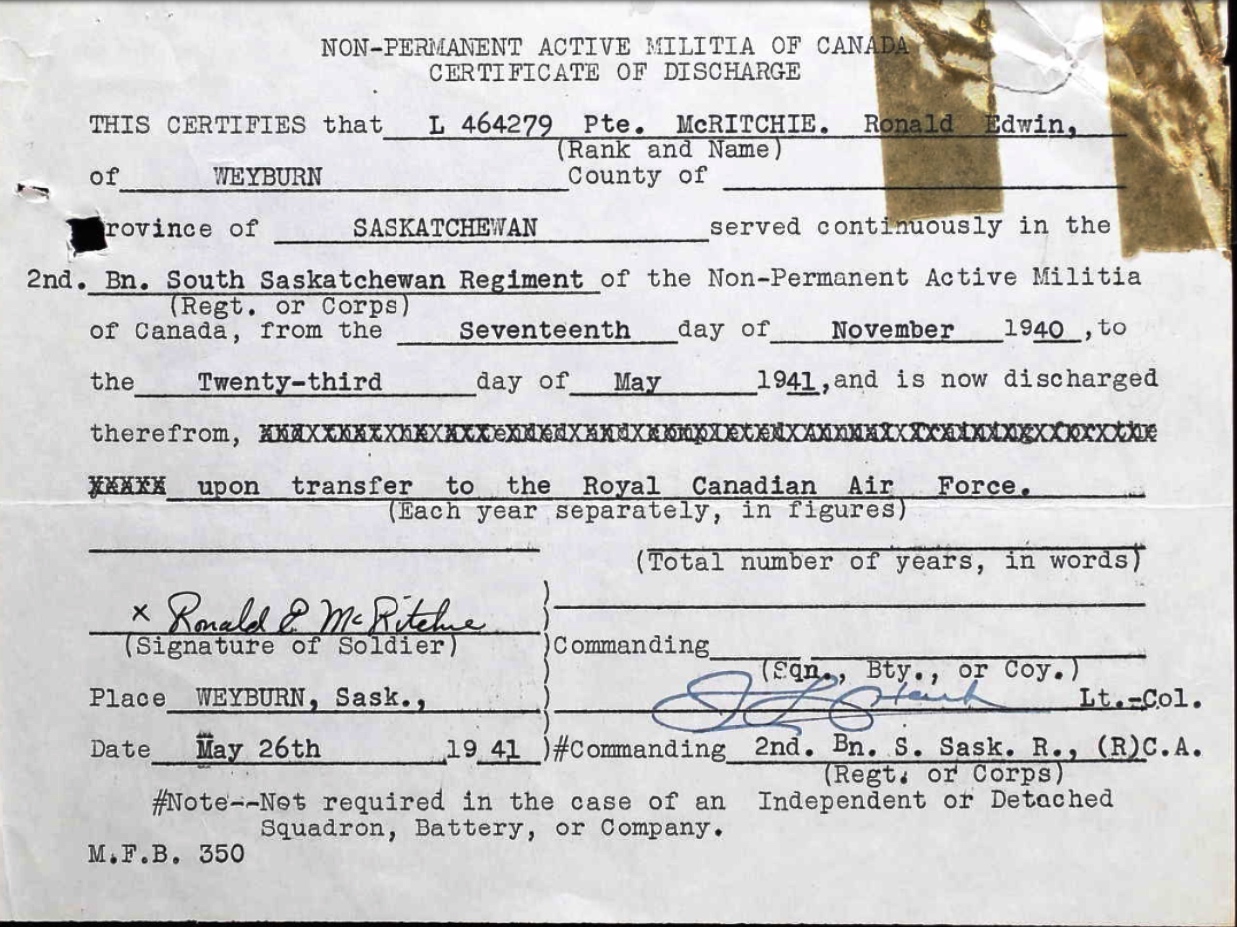 NON-PERMANENT ACTIVE MILITIA OF CANADA
CERTIFICATE OF DISCHARGE
THIS CERTIFIES that L 464279 Pte. McRITCHIE. Ronald Edwin,
(Rank and Name)
of WEYBURN County of
rovince of SASKATCHEWAN served continuously in the
2nd. Bn. South Saskatchewan Regiment of the Non-Permanent Active Militia
(Regt. or Corps)
of Canada, from the Seventeenth day of November 1940, to
the Twenty-third day of May 1941, and is now discharged
therefrom,
upon transfer to the Royal Canadian Air Force.
(Each year separately, in figures)
(Total number of years, in words)
x Ronald E McRitchie
(Signature of Soldier)
Commanding
(Sqn., Bty., or Coy.)
Place WEYBURN, Sask., Lt.-Col.
Date May 26th 19 41 )#Commanding 2nd. Bn. S. Sask. R., (R)C.A.
(Regt. or Corps)
#Note--Not required in the case of an Independent or Detached
Squadron, Battery, or Company.
M.F.B. 350